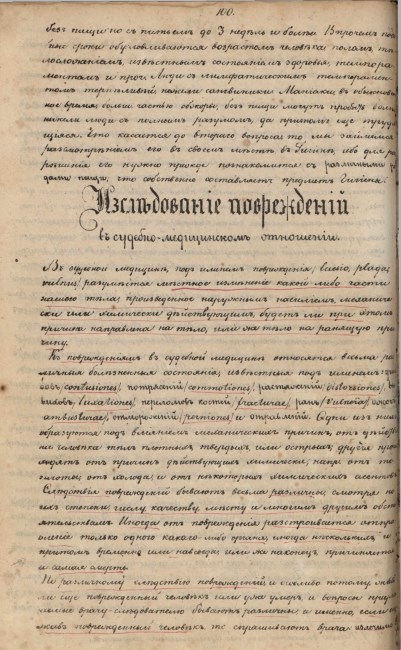 100.
безъ пищи но съ питьемъ до 3 недѣль и болѣе. Впрочемъ
сроки обусловливаются возрастомъ человѣка поломъ
извѣстнымъ состояніемъ здоровья, темпера
ментомъ и проч. Люди съ лимфатическимъ темперамен
томъ терпѣливѣй нежели сангвиники. Маніаки въ обыкновен
ное время большею частью обжоры, безъ пищи могутъ пробыть болѣе
нежели люди съ полнымъ разумомъ, да при томъ еще
щіеся. Что касается до втораго вопроса то мы займемся
разсмотрѣніемъ его въ своемъ мѣстѣ въ Гигіенѣ, ибо для раз
рѣшенія его нужно прежде познакомится съ различными
пищи, что собственно составляетъ предметъ Гигіены.
Изслѣдованіе поврежденій
въ судебно-медицинскомъ отношеніи.
Въ судебной медицинѣ, подъ именемъ поврежденія, laesio,
vulnus, разумѣется мѣстное измѣненіе какой либо части
нашего тѣла, произведенное наружнымъ насиліемъ, механиче
ски или химически дѣйствующимъ, будетъ ли при этомъ
причина направлена на тѣло, или же тѣло на ранящую при
чину.
Къ поврежденіямъ въ судебной медицинѣ относятся весьма раз
личныя болѣзненныя состоянія, извѣстныя подъ именемъ
contusiones, потрясеній commotiones, растяженій distorsiones,
luxationes, переломовъ костей, fracturae, ранъ, vulnera,
ambusturae, отмороженій, perniones и отравленій. Одни изъ нихъ
образуются подъ вліяніемъ механическихъ причинъ, отъ дѣйст
на человѣка тѣлъ плотныхъ твердыхъ или острыхъ; другія проис
ходятъ отъ причинъ дѣйствующихъ химически, напр. отъ те
плоты, отъ холода, и отъ нѣкоторыхъ химическихъ агентовъ.
Слѣдствія поврежденій бываютъ весьма различны, смотря по
ихъ степени, числу качеству, мѣсту и многимъ другимъ обсто
ятельствамъ. Иногда отъ поврежденія разстроивается отпра
вленіе только одного какого-либо органа, иногда нѣсколькихъ и
притомъ временно или навсегда, или же наконецъ, причиняется
и самая смерть.
По различному слѣдствію поврежденій и особливо потому, живъ
ли еще поврежденный человѣкъ или уже умеръ, и вопросы
врачу-слѣдователю бываютъ различны, а именно, если
живъ поврежденный человѣкъ, то спрашиваютъ врача: